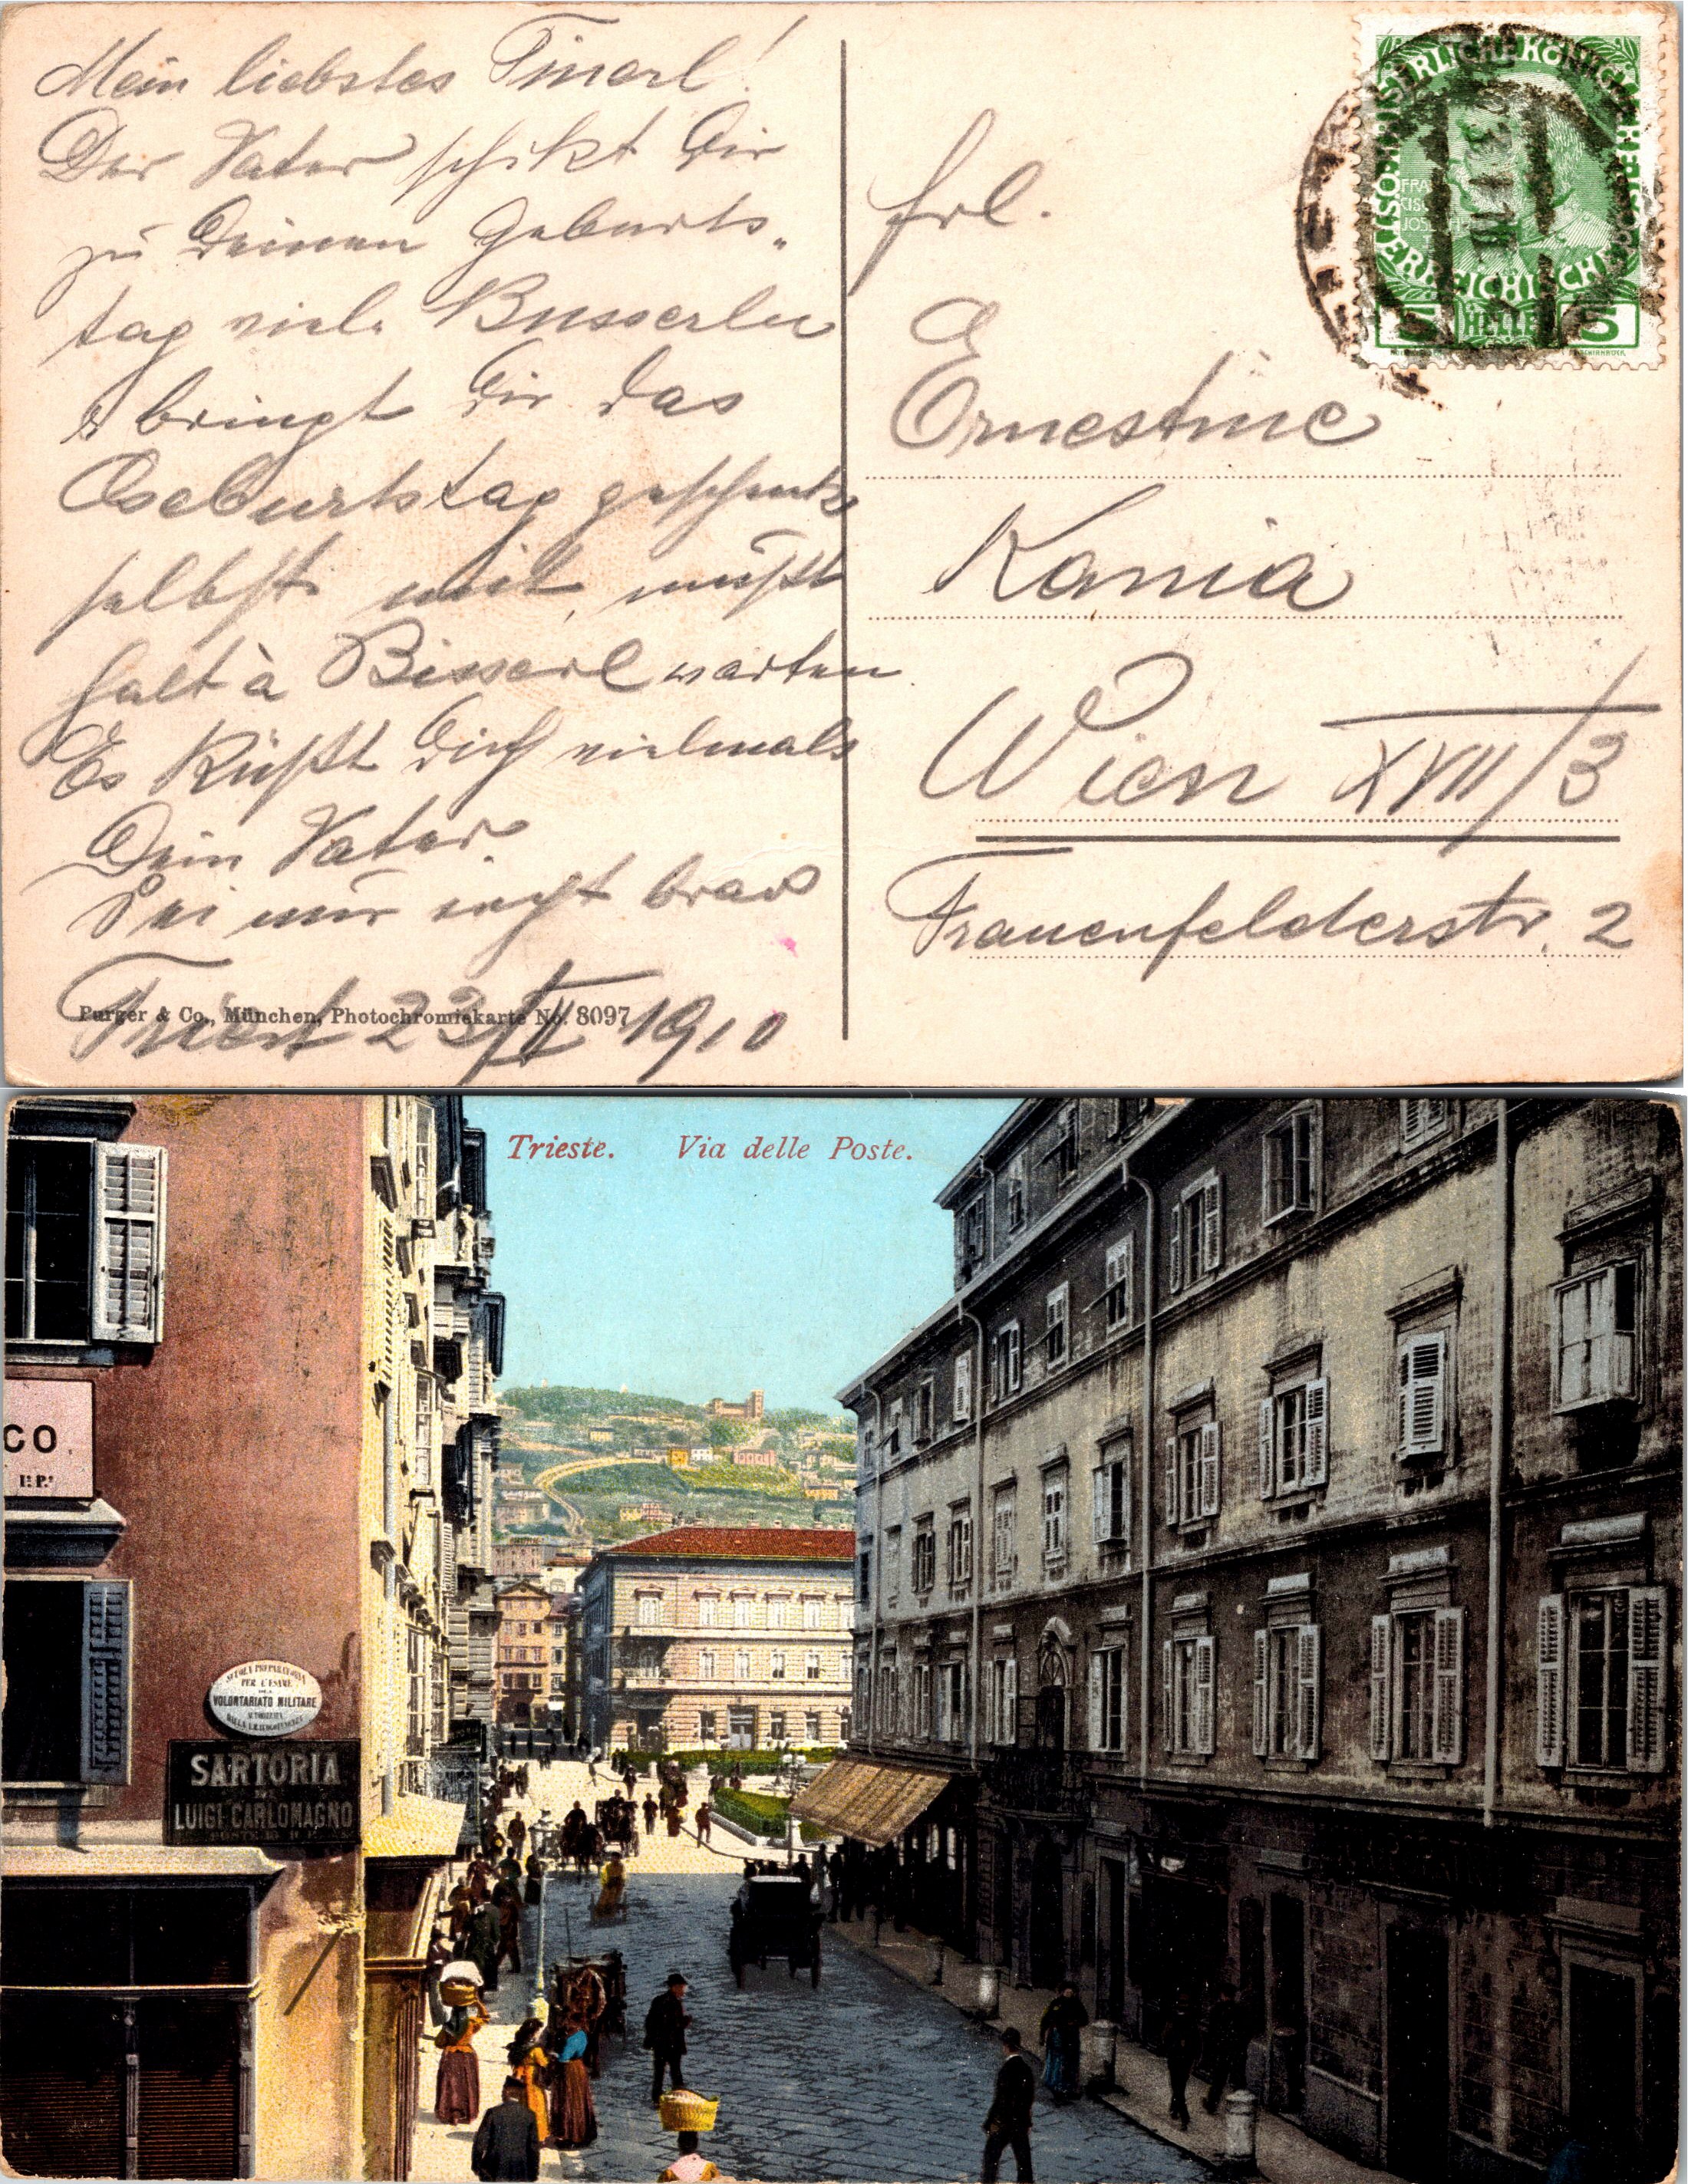 Mein liebstes Tinerl!
Der Vater schikt Dir
zu Deinen Geburts„
tag viele Busserln
& bringt Dir das
Geburtstag geschenk
selbst mit, mußt
halt à Bisserl warten
Es küßt Dich vielmals
Dein Vater.
Sei nur recht brav
Triest 23/ 1910
Purger & Co., München, Photochromiekarte No. 8097
Frl.
Ernestine
Kania
Wien XVII/3
Frauenfelderstr. 2
KAISERLICHE KÖNIGLICHE
ÖSTERREICHISCHE
5 HELLER 5
Trieste. Via delle Poste.
CO.
SCUOLA PREPARATORIA
PER L'ESAME
VOLONTARIATO MILITARE
AUTORIZZATA
SARTORIA
LUIGI CARLOMAGNO